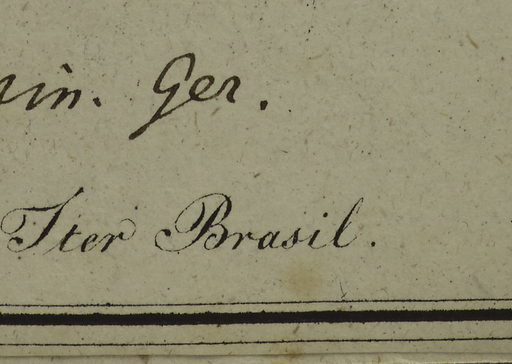 in. Ger.
Iter Brasil.